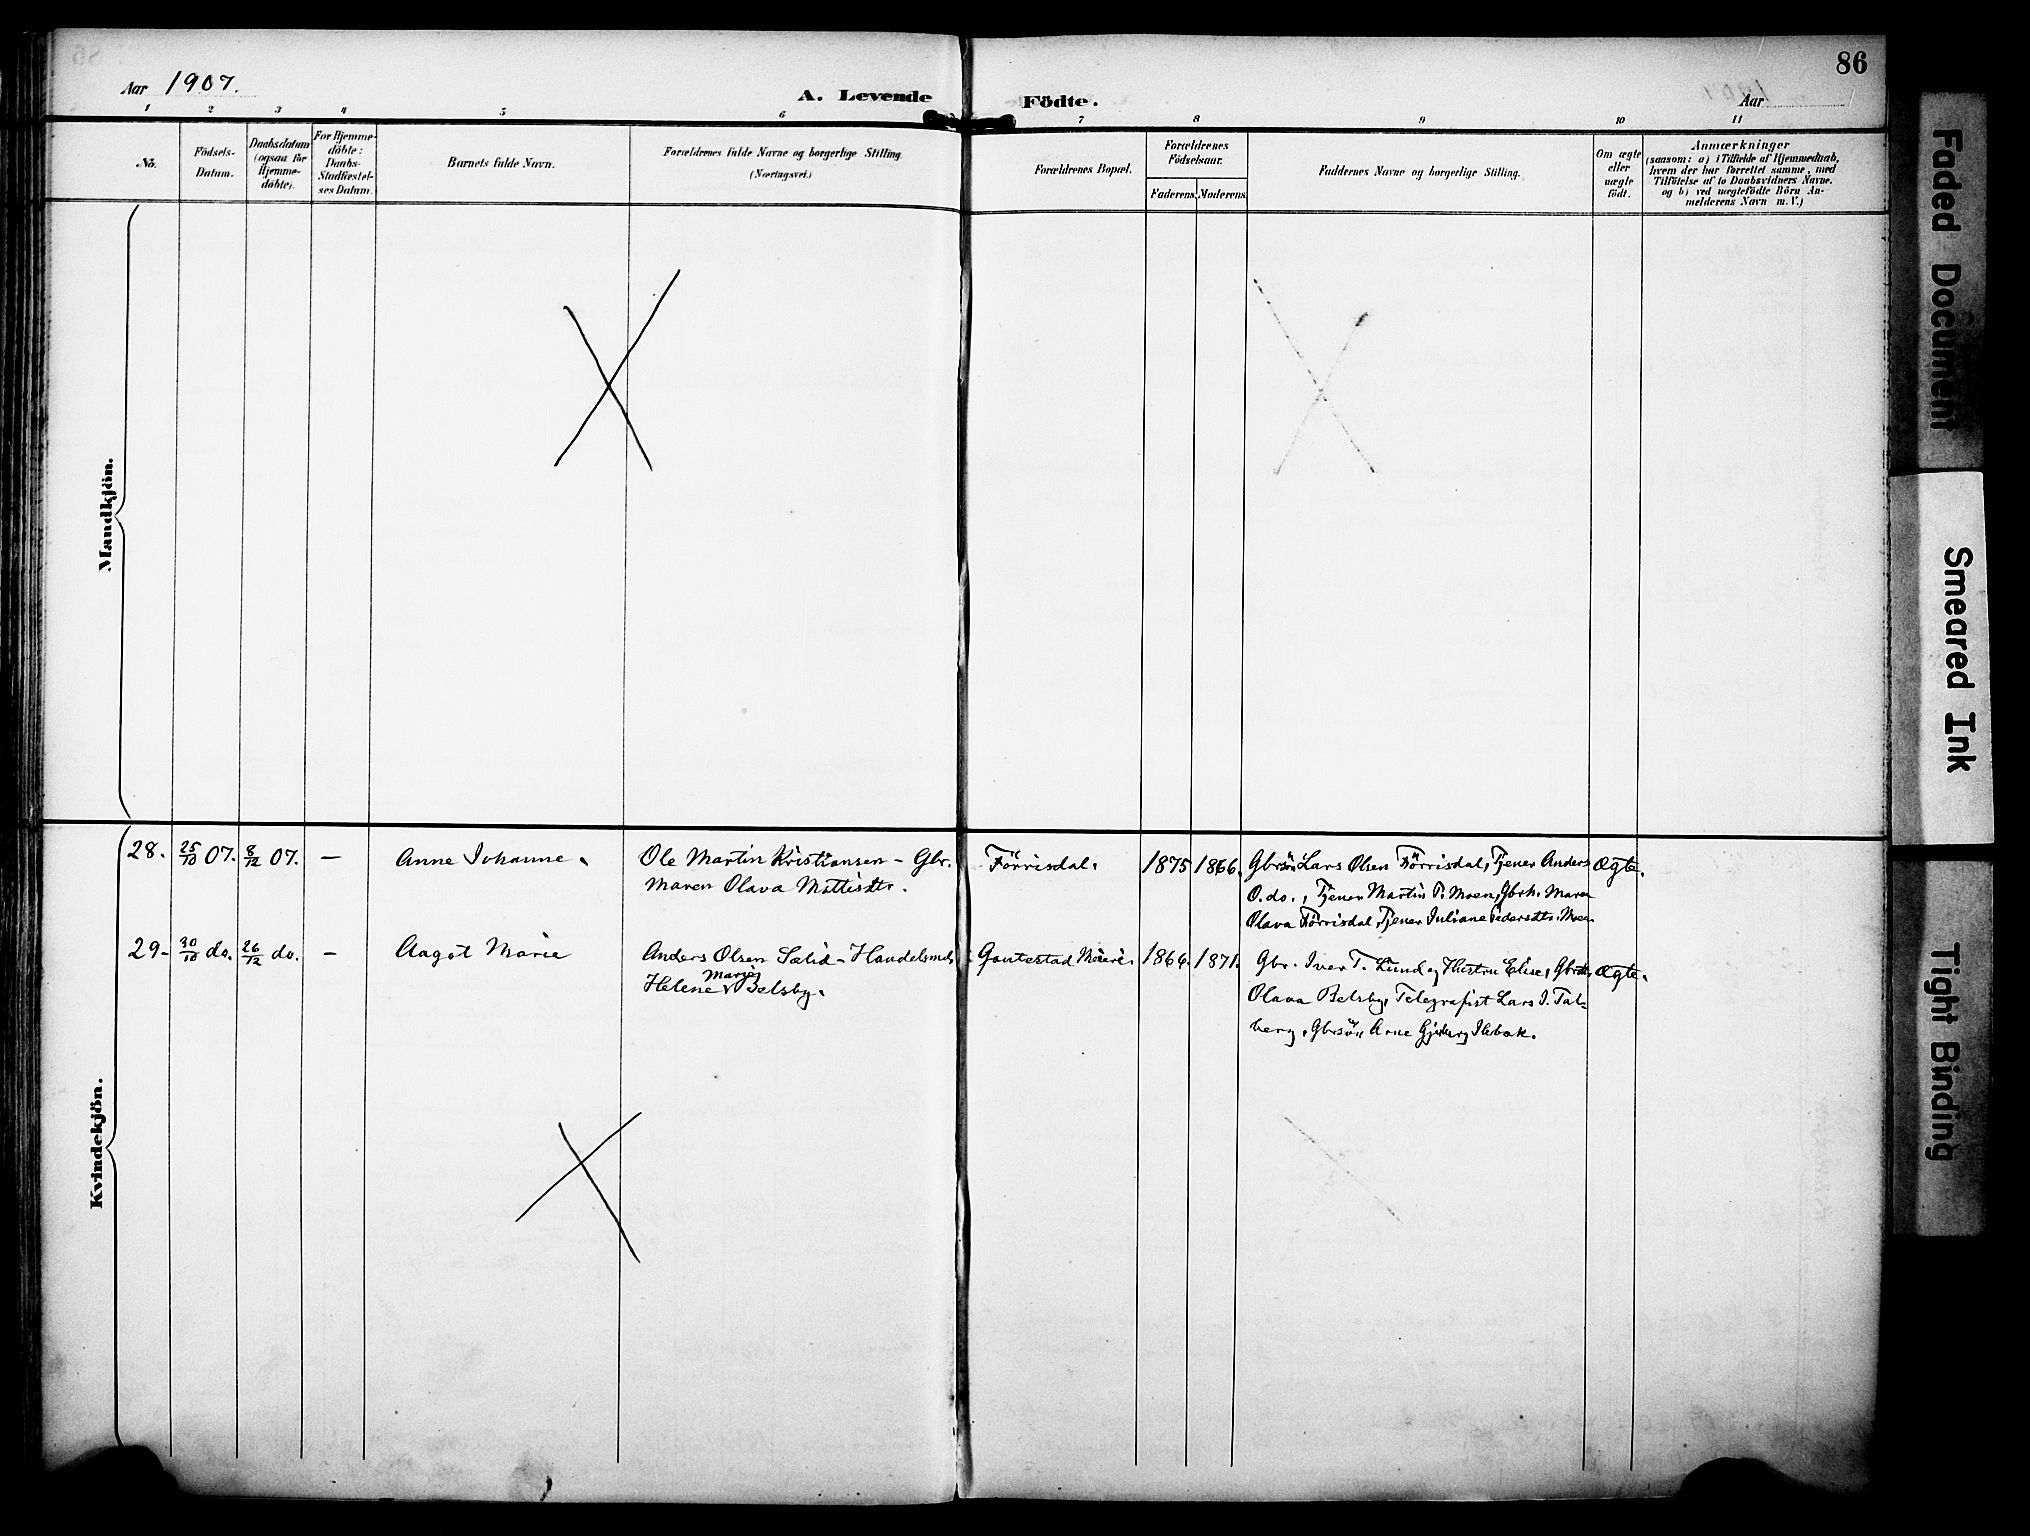 Aar 1907.
A. Levende
Födte.
Aar
86
1 2 3 4 5 6 7 8 9 10 11
No.
Födsels-
Datum.
Daabsdatum
(ogsaa for
Hjemme-
döbte).
For Hjemme-
döbte:
Daabs-
Stadfæstel-
ses Datum.
Barnets fulde Navn.
Forældrenes fulde Navne og borgerlige Stilling.
(Næringsvei.)
Forældrenes Bopæl.
Forældrenes
Födselsaar.
Faderens. Moderens.
Faddernes Navne og borgerlige Stilling.
Om ægte
eller
uægte
född.
Anmærkninger
(saasom: a) i Tilfælde af Hjemmedaab,
hvem der har forrettet samme, med
Tilföielse af to Daabsvidners Navne.
og b) ved uægtefödte Börn An-
melderens Navn m. V.)
Mandkjön.
Kvindekjön.
28. 25/10 07. 8/12 07. — Anne Johanne.
Ole Martin Kristiansen - Gbr.
Maren Olava Mattisdtr.
Förrisdal.
1875 1866.
Gbrsön Lars Olsen Förrisdal, Tjener Anders
O. do., Tjener Martin P. Moen, Gbrk. Maren
Olava Förrisdal, Tjener Juliane Pedersdtr. Moen
Ægte.
29. 30/10 do. 26/12 do. — Aagot Marie
Anders Olsen Sælid - Handelsmd.
Helene Marie Belsby.
Gautestad
1866. 1871.
Gbr. Iver T. Lund og Hustru Elise, Gbrk.
Olava Belsby, Telegrafist Lars I. Tal-
berg, Gbrsön Arne
Ægte.
Faded Document
Smeared Ink
Tight Binding